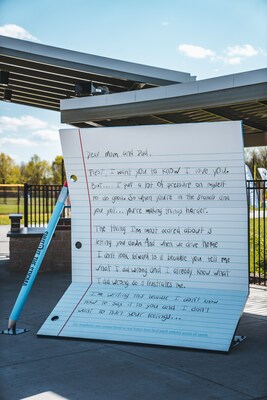 Dear Mom and Dad,
First, I want you to know I love you.
But... I put a lot of pressure on myself
to do good. So when you're in the stands and
you yell... you're making things harder.
The thing I'm most worried about is
letting you down. And then we drive home
I don't look forward to it because you tell me
what I did wrong and I already know what
I did wrong so it frustrates me.
I'm writing this because I don't know
how to say it to you and I don't
want to hurt your feelings...